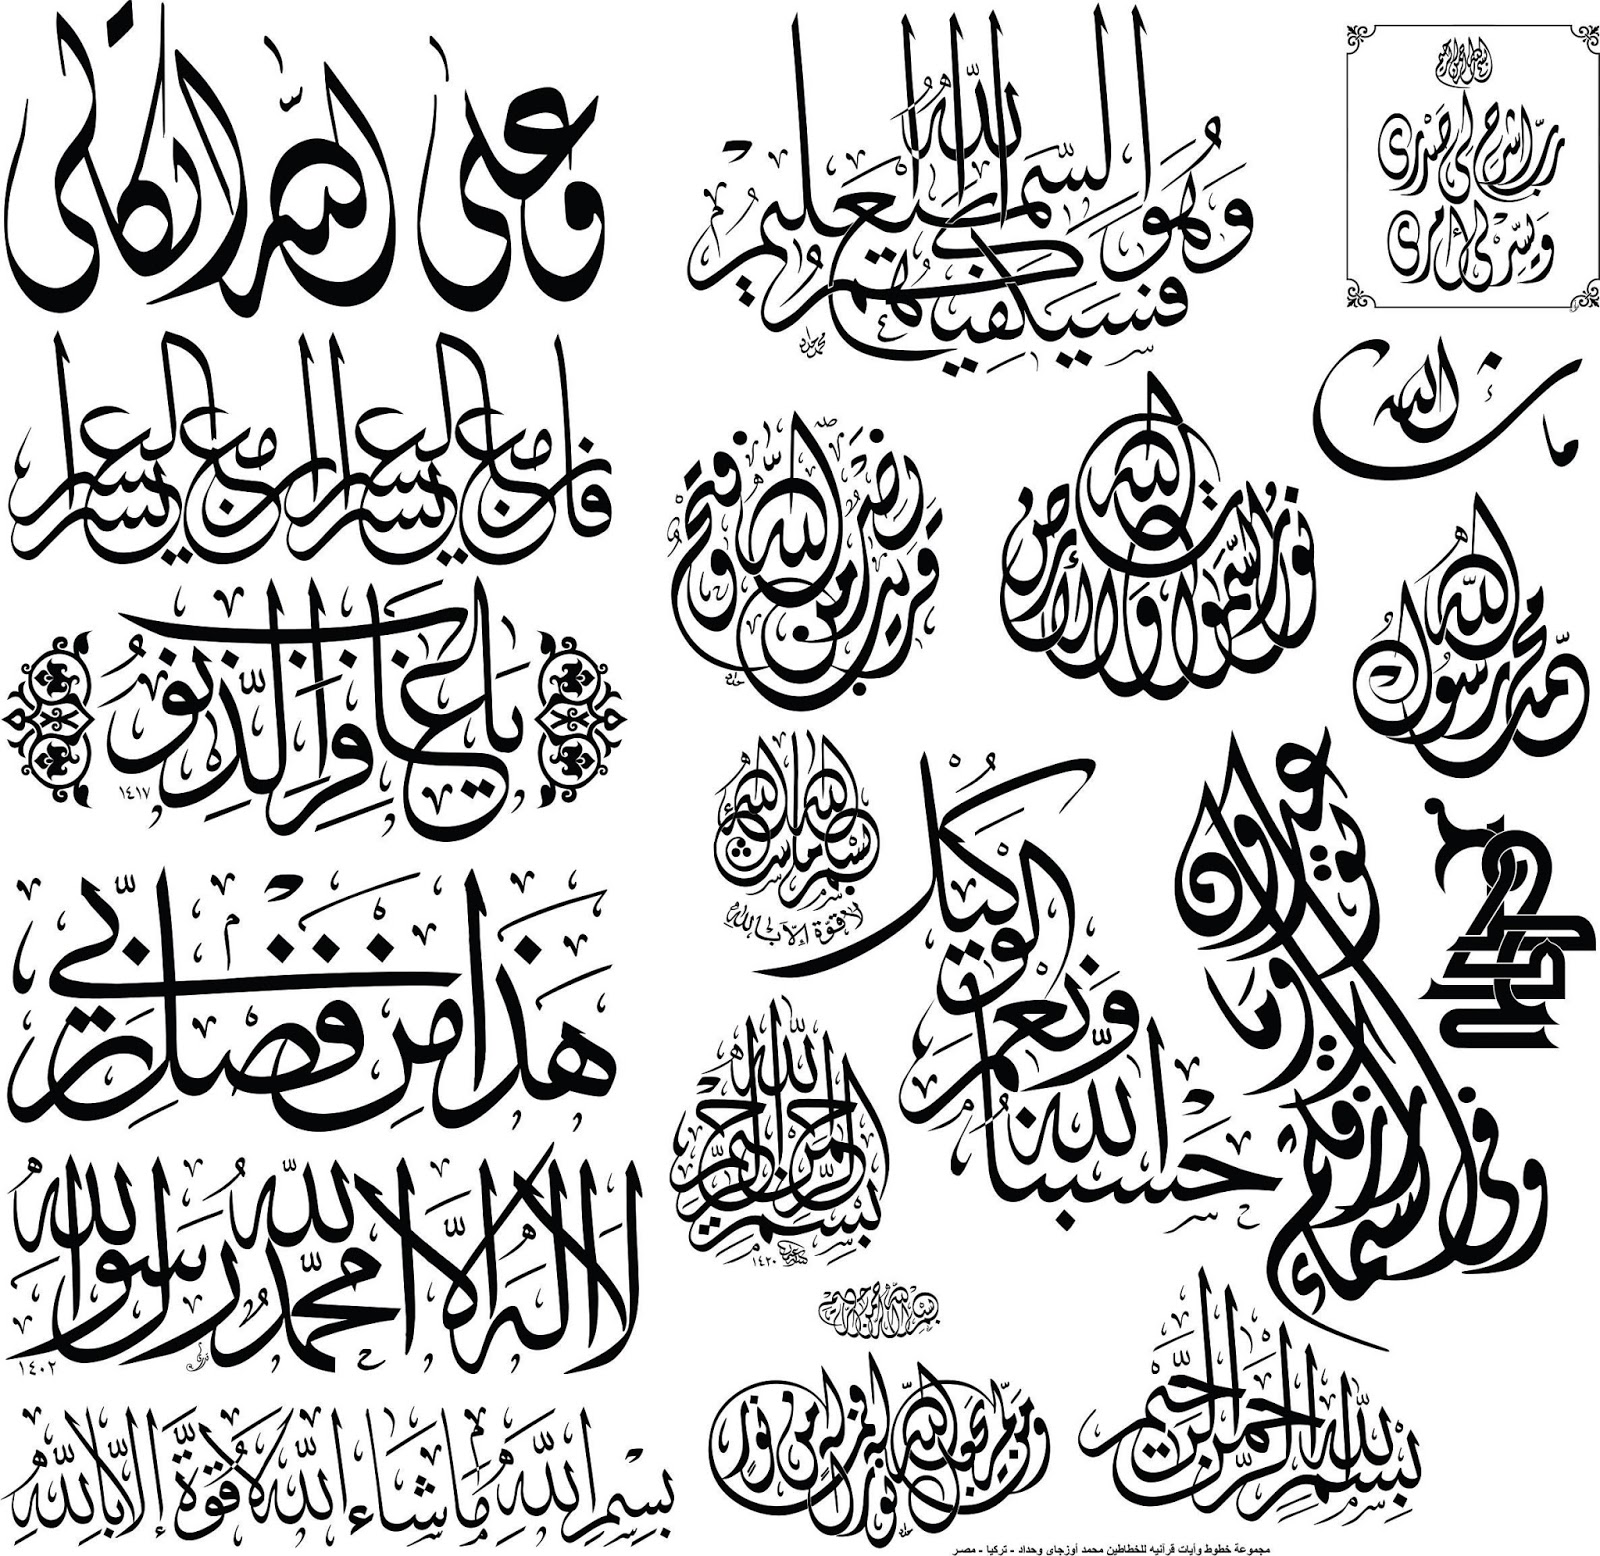 وعلى الله اتكالي
فإن مع العسر يسرا إن مع العسر يسرا
يا غافر الذنوب
١٤١٧
هذا من فضل ربي
لا إله إلا الله محمد رسول الله
١٤٠٢
بسم الله ما شاء الله لا قوة إلا بالله
فسيكفيكهم الله وهو السميع العليم
محمد حداد
نصر من الله وفتح قريب
حداد
الله نور السموات والأرض
بسم الله ما شاء الله
لا قوة إلا بالله
حسبنا الله ونعم الوكيل
بسم الله الرحمن الرحيم
١٤٢٠
بسم الله الرحمن الرحيم
ومن لم يجعل الله له نورا فما له من نور
حداد
بسم الله الرحمن الرحيم
رب اشرح لي صدري
ويسر لي أمري
ما شاء الله
محمد رسول الله
وفي السماء رزقكم وما توعدون
بسم الله الرحمن الرحيم
مجموعة خطوط وأيات قرآنيه للخطاطين محمد أوزجاى وحداد - تركيا - مصر